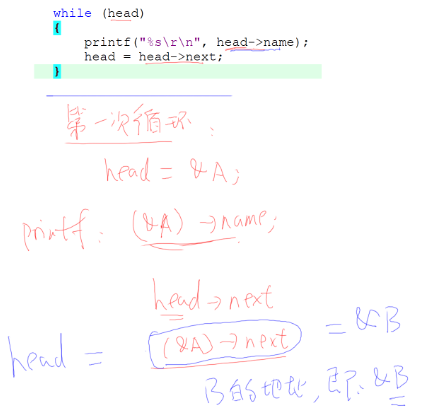 while (head)
{
printf("%s\r\n", head->name);
head = head->next;
}
第一次循环:
head = &A;
printf: (&A)->name;
head->next
head = (&A)->next = &B
B的地址,即: &B